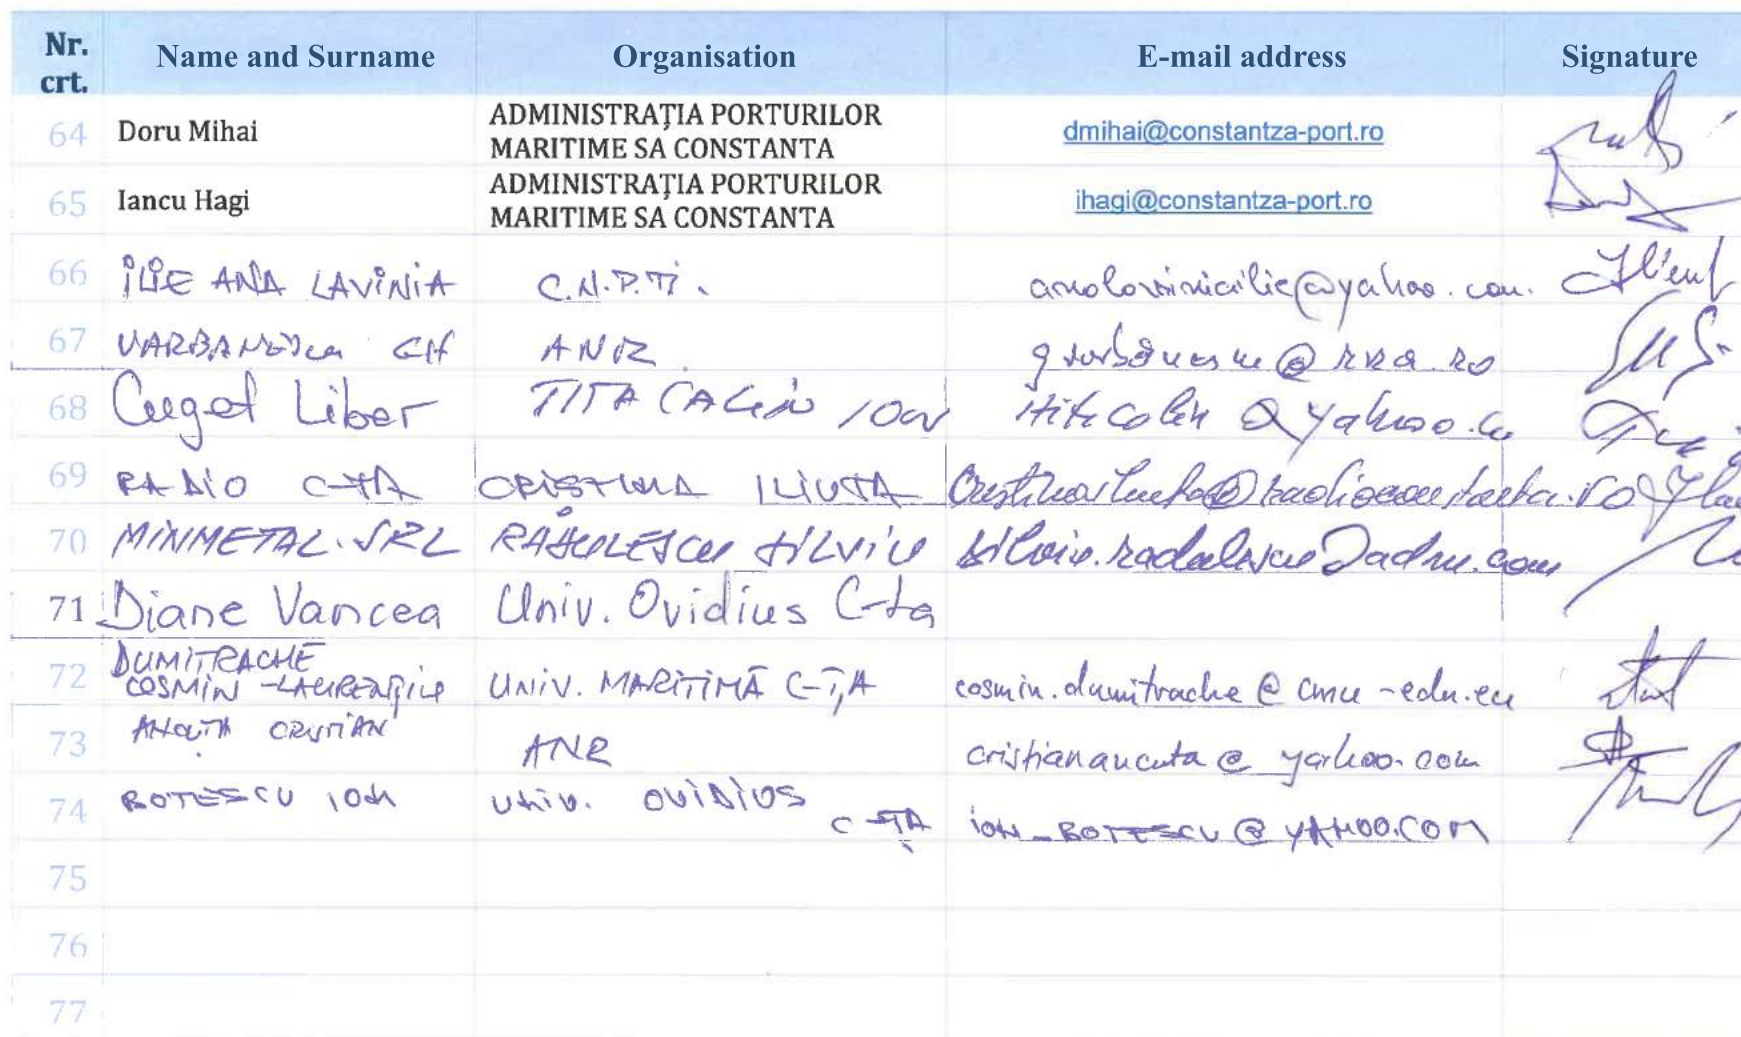 Nr. crt. Name and Surname Organisation E-mail address Signature
64 Doru Mihai ADMINISTRAȚIA PORTURILOR MARITIME SA CONSTANTA dmihai@constantza-port.ro
65 Iancu Hagi ADMINISTRAȚIA PORTURILOR MARITIME SA CONSTANTA ihagi@constantza-port.ro
66 ILIE ANA LAVINIA C.N.P.TI. analaviniailie@yahoo.com.
67 GH ANR
68 Cuget Liber TITA CALIN
69 RADIO C-TA CRISTINA ILIUTA
70 MINMETAL.SRL RĂDULESCU SILVIU
71 Diane Vancea Univ. Ovidius C-ta
72 DUMITRACHE COSMIN-LAURENȚIU UNIV. MARITIMĂ C-ȚA cosmin.dumitrache@cmu-edu.eu
73 CRISTIAN ANR cristianancuta@yahoo.com
74 BOTESCU ION UNIV. OVIDIUS C-ȚA ION_BOTESCU@YAHOO.COM
75
76
77